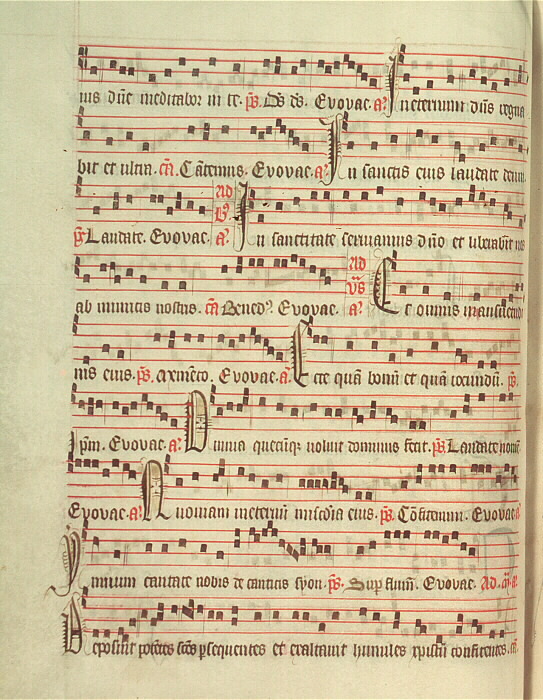 nis dn̄e meditabor in te. p̄s. Ds ds. Evovae. a͞. In eternum dn̄s regna
bit et ultra. cā. Cātemus. Evovae. a͞. In sanctis eius laudate deum.
Ad B̄.
p̄s. Laudate. Evovae. a͞. In sanctitate serviamus dn̄o et liberabit nos
Ad vs̄
ab inimicis nostris. cā Bened9. Evovae. a͞. Et omnis mansuetud
nis eius. p̄s. Memēto. Evovae. a͞. Ecce quā bonū et quā iocundū. p̄s.
Ip̄m. Evovae. a͞. Omnia quecūq̄ voluit dominus fecit. p̄s. Laudate nomē.
Evovae. a͞. Quoniam in eternū mīcdia eius. p̄s. Cōfitemini. Evovae. a͞
Ymnum cantate nobis de canticis syon. p̄s. Sup flumī. Evovae. Ad. m̄. a͞.
Deposuit potētes sc̄os p̄sequentes et exaltavit humiles xp̄istū confitentes. cā.